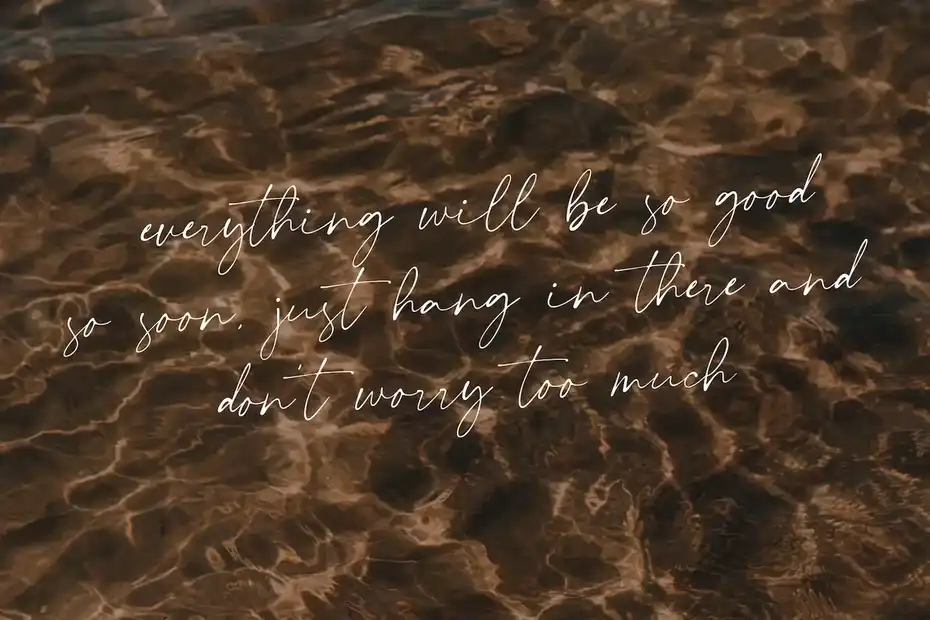 everything will be so good
so soon. just hang in there and
don't worry too much